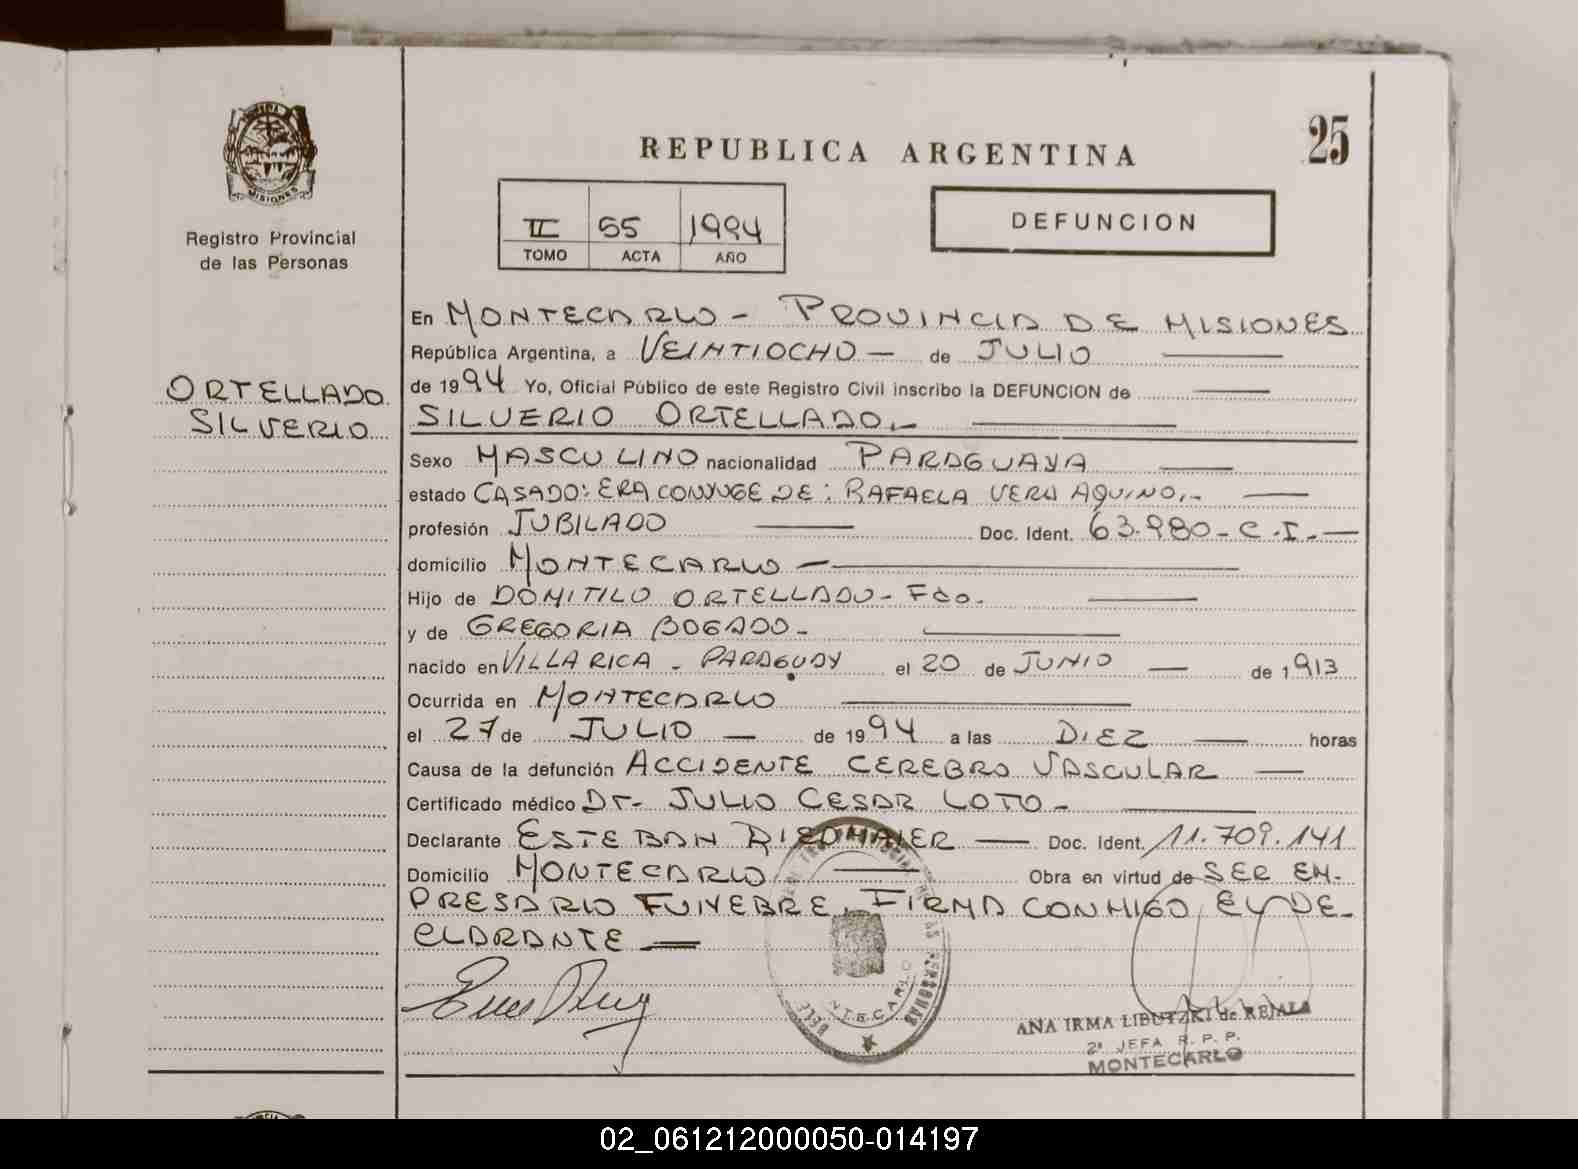 MISIONES
Registro Provincial
de las Personas
ORTELLADO
SILVERIO
25
REPUBLICA ARGENTINA
II 55 1994
TOMO ACTA AÑO
DEFUNCION
En MONTECARLO - PROVINCIA DE MISIONES
República Argentina, a VEINTIOCHO — de JULIO —
de 1994 Yo, Oficial Público de este Registro Civil inscribo la DEFUNCION de
SILVERIO ORTELLADO.-
Sexo MASCULINO nacionalidad PARAGUAYA —
estado CASADO: ERA CONYUGE DE: RAFAELA VERA AQUINO.- —
profesión JUBILADO — Doc. Ident. 63.980 - C.I. —
domicilio MONTECARLO —
Hijo de DOMITILO ORTELLADO - Fdo. —
y de GREGORIA BOGADO - —
nacido en VILLA RICA - PARAGUAY el 20 de JUNIO — de 1913
Ocurrida en MONTECARLO —
el 27 de JULIO — de 1994 a las DIEZ — horas
Causa de la defunción ACCIDENTE CEREBRO VASCULAR —
Certificado médico Dr. JULIO CESAR LOTO - —
Declarante ESTEBAN RIEDMAIER — Doc. Ident. 11.709.141
Domicilio MONTECARLO — Obra en virtud de SER EM-
PRESARIO FUNEBRE. FIRMA CONMIGO EL DE-
CLARANTE —
PERSONAS
ANA IRMA LIBUTZKI de REJALA
2ª JEFA R. P. P.
MONTECARLO
02_061212000050-014197